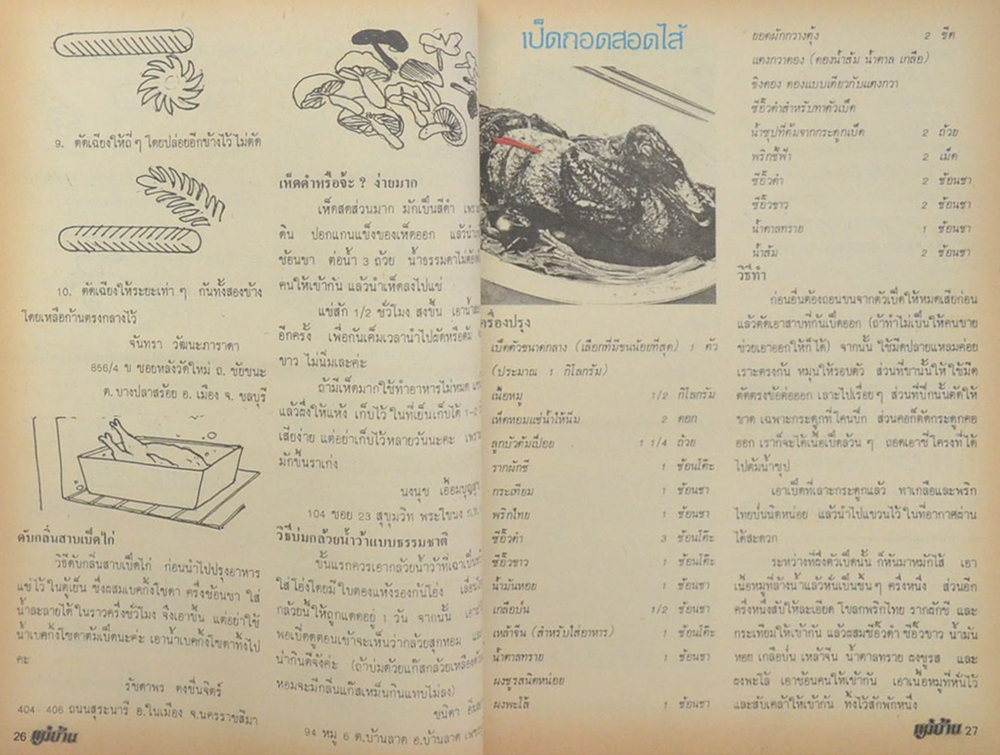 9. ตัดเฉียงให้ถี่ ๆ โดยปล่อยอีกข้างไว้ไม่ตัด
10. ตัดเฉียงให้ระยะเท่า ๆ กันทั้งสองข้าง
โดยเหลือก้านตรงกลางไว้
จันทรา วัฒนะภาราดา
856/4 ข ซอยหลังวัดใหม่ ถ. ชัยชนะ
ต. บางปลาสร้อย อ. เมือง จ. ชลบุรี
ดับกลิ่นสาบเป็ดไก่
วิธีดับกลิ่นสาบเป็ดไก่ ก่อนนำไปปรุงอาหาร
แช่ไว้ในตู้เย็น ซึ่งผสมเบคกิ้งโซดา ครึ่งช้อนชา ใส่
น้ำละลายไต้ ในราวครึ่งชั่วโมง จึงเอาขึ้น แต่อย่าใช้
น้ำเบคกิ้งโซดาต้มเป็ดนะคะ เอาน้ำเบคกิ้งโซดาทิ้งไป
คะ
รัชดาพร คงชื่นจิตร์
404 406 ถนนสุระนารี อ.ในเมือง จ.นครราชสีมา
26 แม่บ้าน
เห็ดดำหรือจ๊ะ ? ง่ายมาก
เห็ดสดส่วนมาก มักเป็นสีดำ เพราะ
ดิน ปอกแกนแข็งของเห็ดออก แล้วนำ
ช้อนชา ต่อน้ำ 3 ถ้วย น้ำธรรมดาไม่ต้อง
คนให้เข้ากัน แล้วนำเห็ดลงไปแช่
แช่สัก 1/2 ชั่วโมง สงขึ้น เอาน้ำ
อีกครั้ง เพื่อกันเค็มเวลานำไปผัดหรือต้ม
ขาว ไม่นิ่มเละค่ะ
ถ้ามีเห็ดมากใช้ทำอาหารไม่หมด
แล้วผึ่งให้แห้ง เก็บไว้ในที่เย็นเก็บได้ 1-2
เสียง่าย แต่อย่าเก็บไว้หลายวันนะคะ เพราะ
มักขึ้นราเก่ง
นงนุช เอื้อมบุญ
104 ซอย 23 สุขุมวิท พระโขนง ก.ท.
วิธีบ่มกล้วยน้ำว้าแบบธรรมชาติ
ขั้นแรกควรเอากล้วยน้ำว้าที่เฉาเป็น
ใส่โอ่งโดยมีใบตองแห้งรองก้นโอ่ง
กล้วยนี้ให้ถูกแดดอยู่ 1 วัน จากนั้น
พอเปิดดูตอนเช้าจะเห็นว่ากล้วยสุกหอม
น่ากินดีจังค่ะ (ถ้าบ่มด้วยแก๊สกล้วยเหลือง
หอมจะมีกลิ่นแก๊สเหม็นกินแทบไม่ลง)
ชนิดา
94 หมู่ 6 ต.บ้านลาด อ.บ้านลาด
เป็ดถอดสอดไส้
ครื่องปรุง
เป็ดตัวขนาดกลาง (เลือกที่มีขนน้อยที่สุด) 1 ตัว
(ประมาณ 1 กิโลกรัม)
เนื้อหมู 1/2 กิโลกรัม
เห็ดหอมแช่น้ำให้นิ่ม 2 ดอก
ลูกบัวต้มเปื่อย 1 1/4 ถ้วย
รากผักชี 1 ช้อนโต๊ะ
กระเทียม 1 ช้อนชา
พริกไทย 1 ช้อนชา
ซีอิ๊วดำ 3 ช้อนโต๊ะ
ซีอิ๊วขาว 1 ช้อนโต๊ะ
น้ำมันหอย 1 ช้อนชา
เกลือป่น 1/2 ช้อนชา
เหล้าจีน (สำหรับใส่อาหาร) 1 ช้อนโต๊ะ
น้ำตาลทราย 1 ช้อนชา
ผงชูรสนิดหน่อย
ผงพะโล้ 1 ช้อนชา
ยอดผักกวางตุ้ง 2 ขีด
แตงกวาดอง (ดองน้ำส้ม น้ำตาล เกลือ)
ขิงดอง ดองแบบเดียวกับแตงกวา
ซีอิ๊วดำสำหรับทาตัวเป็ด
น้ำซุปที่ต้มจากกระดูกเป็ด 2 ถ้วย
พริกชี้ฟ้า 2 เม็ด
ซีอิ๊วดำ 2 ช้อนชา
ซีอิ๊วขาว 2 ช้อนชา
น้ำตาลทราย 1 ช้อนชา
น้ำส้ม 2 ช้อนชา
วิธีทำ
ก่อนอื่นต้องถอนขนจากตัวเป็ดให้หมดเสียก่อน
แล้วตัดเอาสาบที่ก้นเป็ดออก (ถ้าทำไม่เป็นให้คนขาย
ช่วยเอาออกให้ก็ได้) จากนั้น ใช้มีดปลายแหลมค่อย
เราะตรงก้น หมุนให้รอบตัว ส่วนที่ขานั้นให้ใช้มีด
ตัดตรงข้อต่อออก เลาะไปเรื่อยๆ ส่วนที่ปีกนั้นตัดให้
ขาด เฉพาะกระดูกที่โคนปีก ส่วนคอก็ตัดกระดูกคอ
ออก เราก็จะได้เนื้อเป็ดล้วน ๆ ถอดเอาซี่โครงที่ได้
ไปต้มน้ำซุป
เอาเป็ดที่เลาะกระดูกแล้ว ทาเกลือและพริก
ไทยป่นนิดหน่อย แล้วนำไปแขวนไว้ในที่อากาศผ่าน
ได้สะดวก
ระหว่างที่ผึ่งตัวเป็ดนั้น ก็หันมาหมักไส้ เอา
เนื้อหมูที่ล้างน้ำแล้วหั่นเป็นชิ้นๆ ครึ่งหนึ่ง ส่วนอีก
ครึ่งหนึ่งสับให้ละเอียด โขลกพริกไทย รากผักชี และ
กระเทียมให้เข้ากัน แล้วผสมซีอิ๊วดำ ซีอิ๊วขาว น้ำมัน
หอย เกลือป่น เหล้าจีน น้ำตาลทราย ผงชูรส และ
ผงพะโล้ เอาช้อนคนให้เข้ากัน เอาเนื้อหมูที่หั่นไว้
และสับเคล้าให้เข้ากัน ทิ้งไว้สักพักหนึ่ง
แม่บ้าน 27